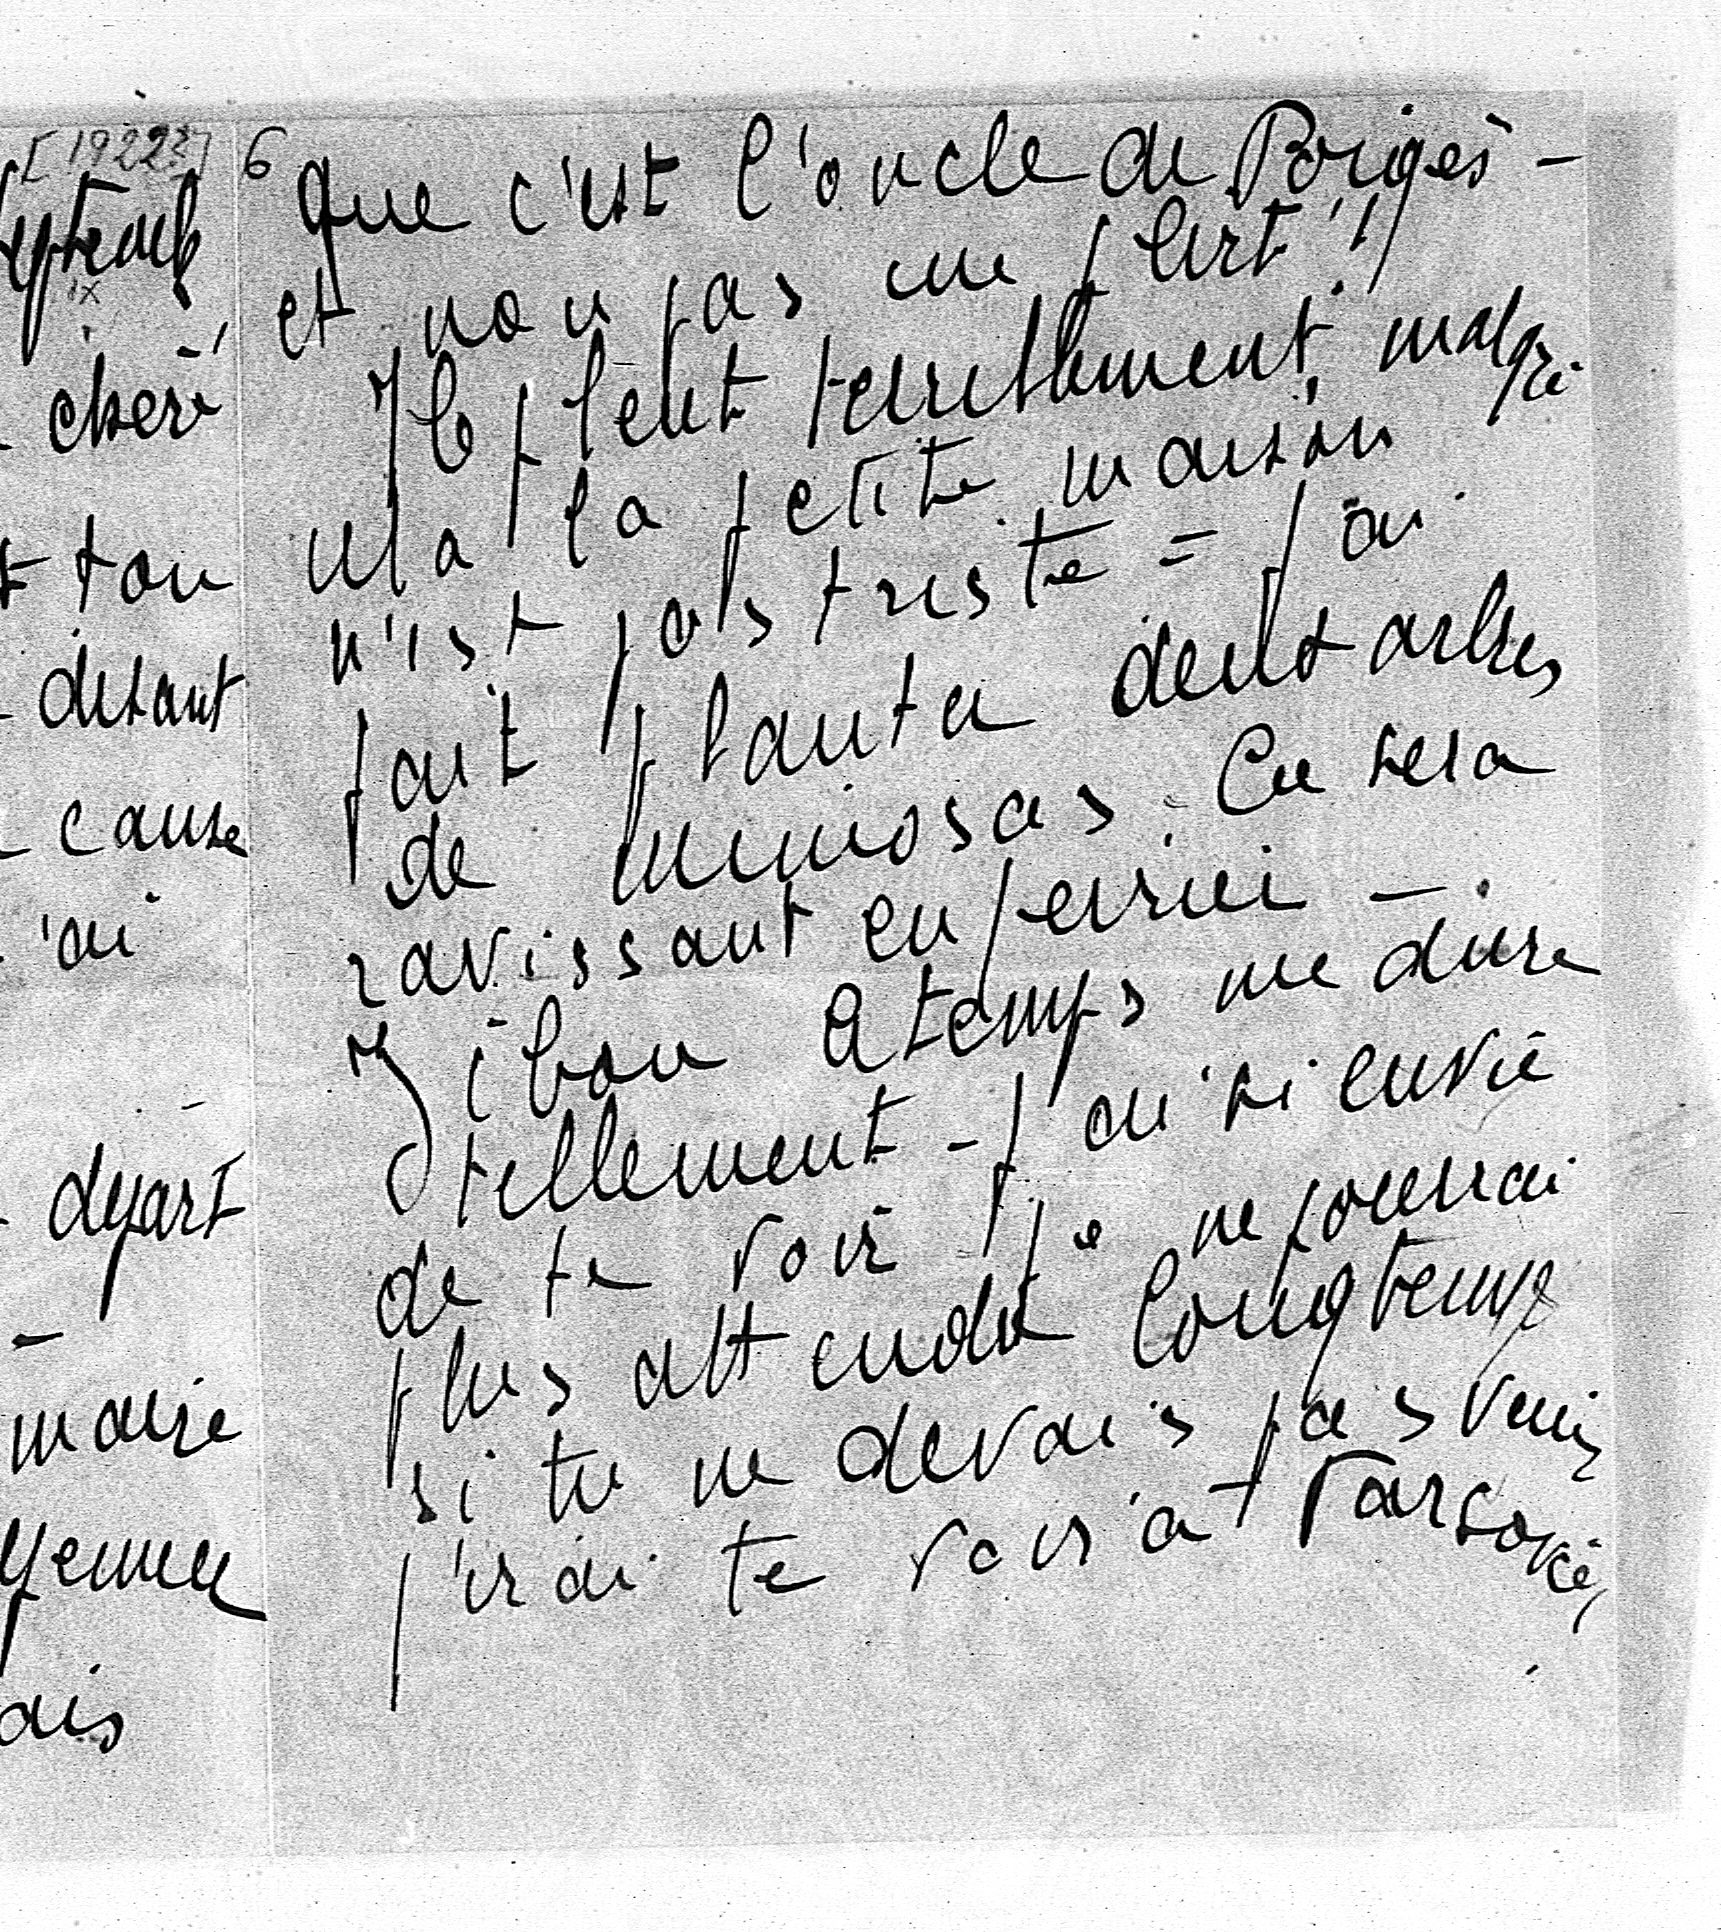 [1922?] 6
chéri
ton
disant
cause
'ai
départ
maire
ais
que c'est l'oncle de Porigès -
et non pas un flirt !!
Il pleut terriblement, malgré
cela la petite maison
n'est pas triste = j'ai
fait planter deux arbres
de mimosas. Ce sera
ravissant en fevrier -
I bon a temps me dure
tellement - j'ai si envie
de te voir je ne pourrai
plus attendre longtemps
si tu ne devais pas venir
j'irai te voir à Varsovie